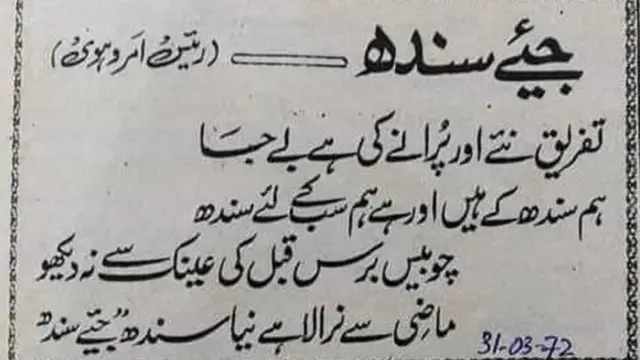 جئے سندھ (رئیس امروہوی)
تفریق نئے اور پُرانے کی ہے بے جا
ہم سندھ کے ہیں اور ہے ہم سب کے لئے سندھ
چوبیس برس قبل کی عینک سے نہ دیکھو
ماضی سے نرالا ہے نیا سندھ "جئے سندھ"
31-03-72